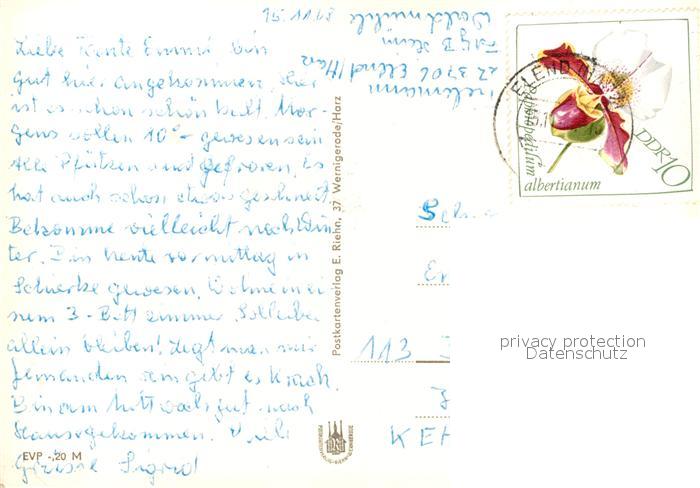 15.11.68
Liebe Tante Emmi bin
gut hier angekommen, hier
ist es schon schön kalt. Mor-
gens sollen 10°- gewesen sein
Alle Pfützen sind gefroren. Es
hat auch schon etwas geschneit
Bekomme vielleicht noch Win
ter. Bin heute vormittag in
Schierke gewesen. Wohne in ei
nem 3-Bett zimmer. Soll
allein bleiben! Legt man mir
Jemanden rein gibt es Krach.
Bin am Mittwoch gut nach
Hause gekommen. Viele
Grüsse Sigrid
EVP -,20 M
Postkartenverlag E. Riehn, 37 Wernigerode/Harz
Heim
ZZ 3706 Elend/Harz
ELEND
Paphiopedilum
albertianum
DDR 10
113
KEH
privacy protection
Datenschutz